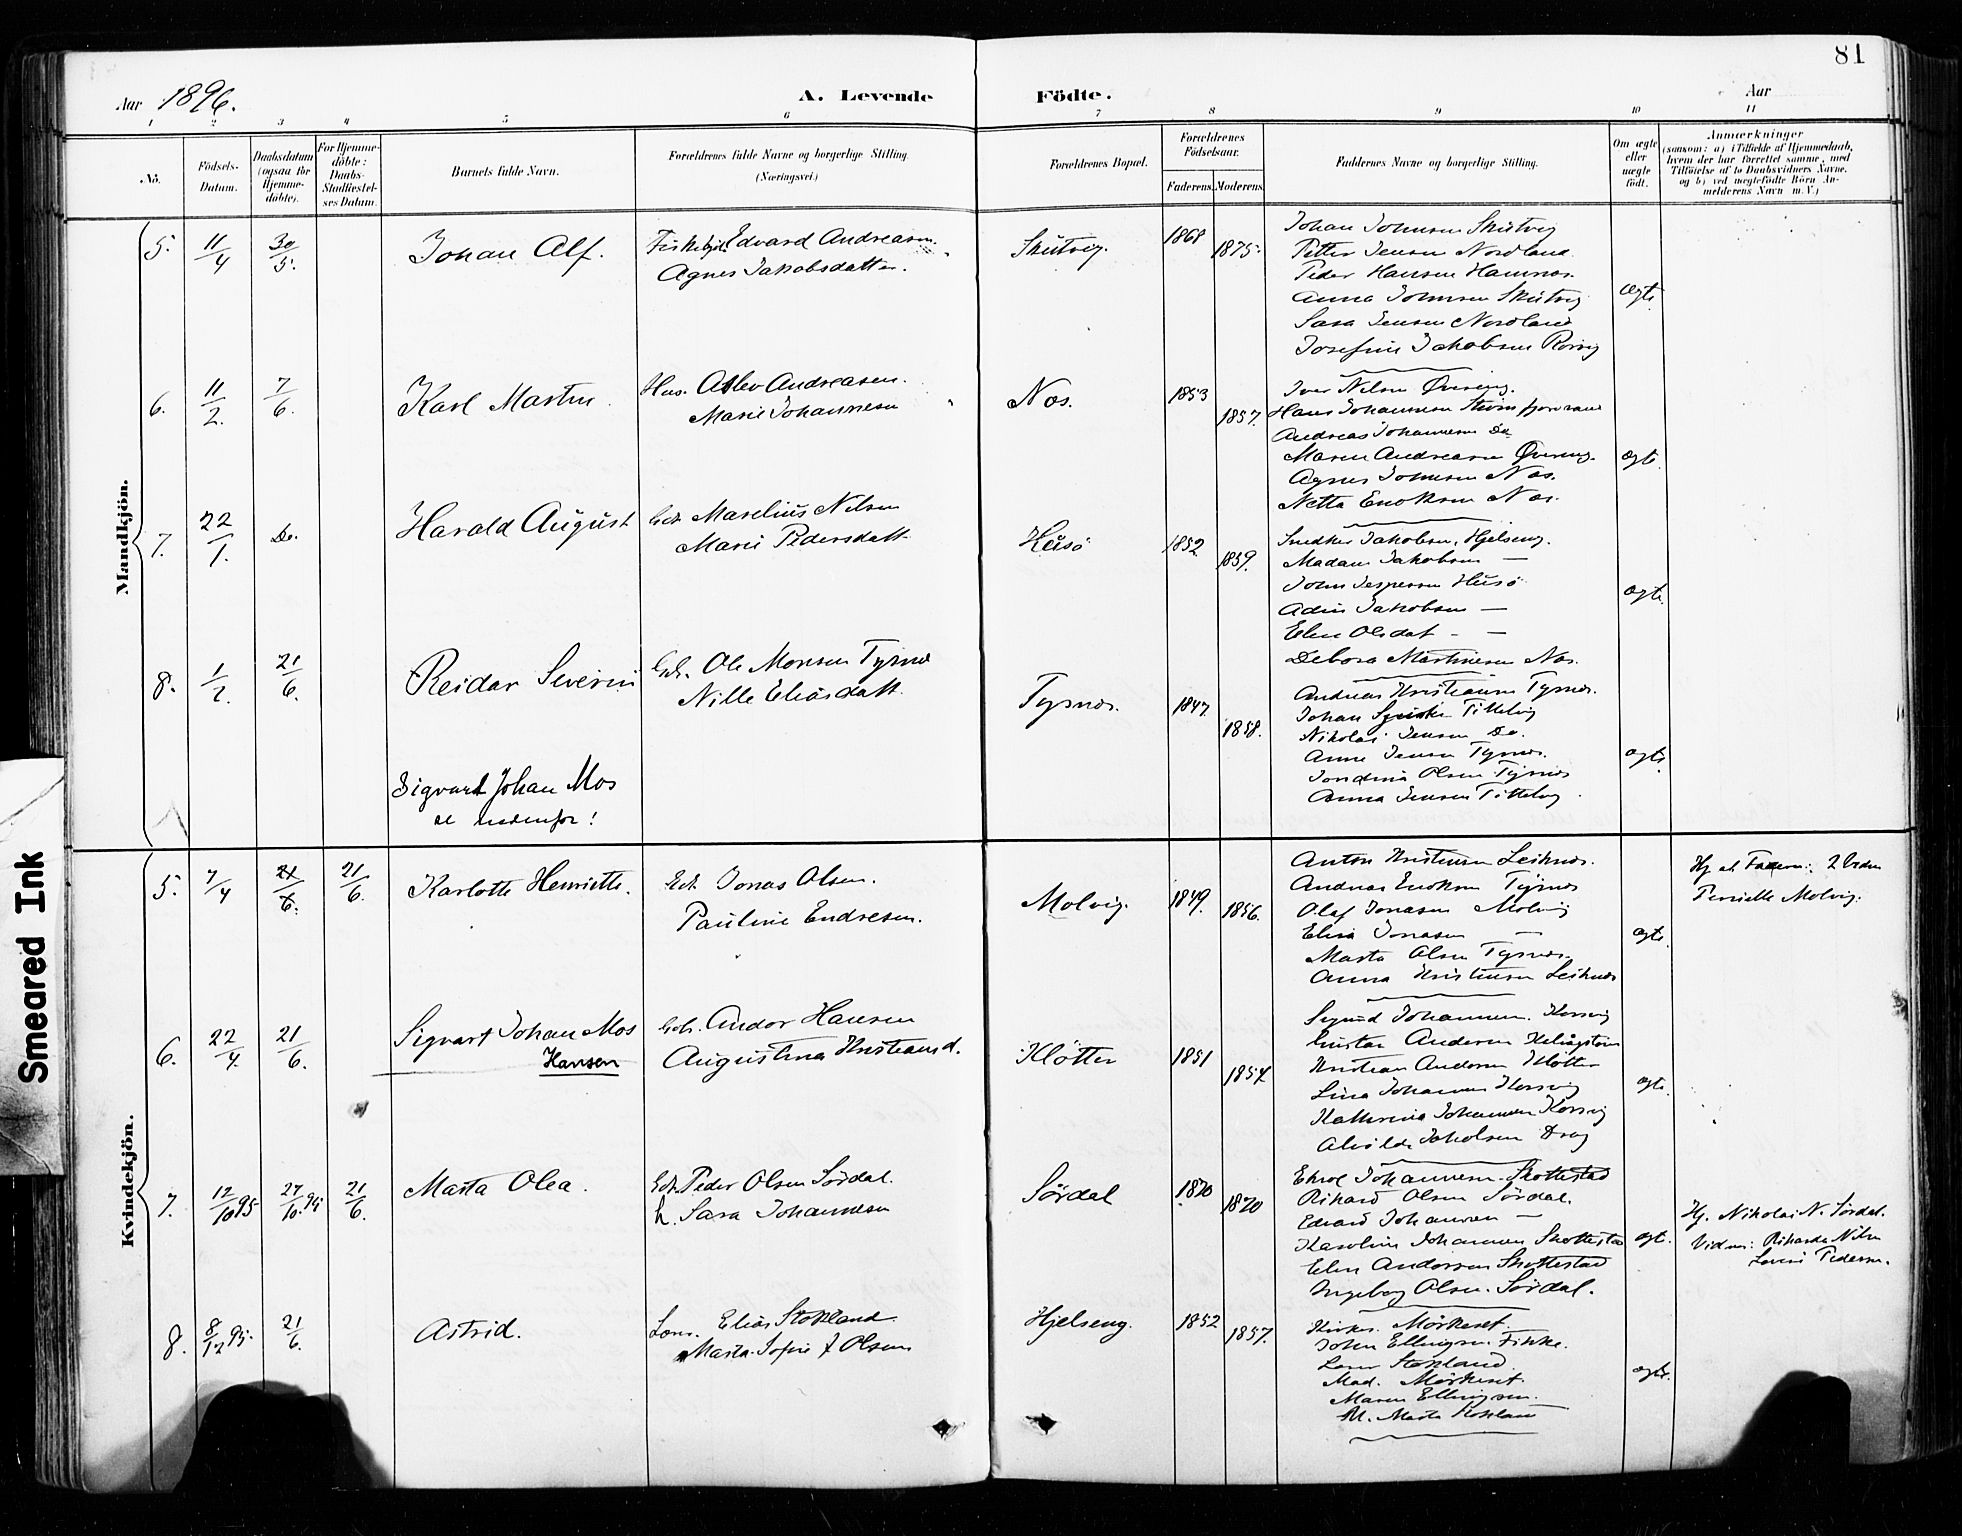 81
Aar 1896.
A. Levende Födte.
Aar
1 2 3 4 5 6 7 8 9 10 11
No.
Födsels-Datum.
Daabsdatum (ogsaa for Hjemme-döbte).
For Hjemme-döbte: Daabs-Stadfæstel-ses Datum.
Barnets fulde Navn.
Forældrenes fulde Navne og borgerlige Stilling. (Næringsvei.)
Forældrenes Bopæl.
Forældrenes Födselsaar.
Faderens. Moderens.
Faddernes Navne og borgerlige Stilling.
Om ægte eller uægte födt.
Anmærkninger
(saasom: a) i Tilfælde af Hjemmedaab,
hvem der har forrettet samme, med
Tilföielse af to Daabsvidners Navne.
og b) ved uægtefödte Börn An-
melderens Navn m. V.)
Mandkjön.
5. 11/4 30/5. Johan Alf. Edvard Andreasen.
Agnes Jakobsdatter.
Skutvig. 1868 1875.
Johan Johnsen Skutvig
Petter Jensen Nordland
Peder Hansen Hamnes.
Anna Johnsen Skutvig
Sara Jensen Nordland
Josefine Jakobsen
ægte
6. 11/2. 7/6. Karl Martin. Hus. Andreasen.
Marie Johannesen
Nes. 1853 1857.
Iver Nilsen Øvereng.
Hans Johannesen
Andreas Johannesen Do
Maren Andreasen Øvereng.
Agnes Johnsen Nes.
Netta Enoksen Nes.
ægte.
7. 22/1. Do. Harald August Gdr. Marelius Nilsen
Marie Pedersdatt.
Husö 1852 1859.
Snedker Jakobsen, Hjelseng.
Madam Jakobsen —
John Jespersen Husö
Jakobsen —
Elen Olsdat - —
Debora Martinesen Nes.
ægte.
8. 1/2. 21/6. Reidar Severin Gdr. Ole Monsen Tysnes
Nille Eliasdatt.
Tysnes. 1847 1858.
Andreas Kristiansen Tysnes.
Johan Tittelvig
Nikolai Jensen Do.
Anne Jensen Tysnes.
Olsen Tysnes
Anna Jensen Tittelvig.
ægte.
Sigvart Johan Mos
se nedenfor!
Kvindekjön.
5. 7/4 21/6. 21/6. Karlotte Henriette. Gdr. Jonas Olsen.
Pauline Endresen.
Molvig. 1849. 1856.
Anton Kristensen Leiknes.
Andreas Enoksen Tysnes
Olaf Jonasen Molvig
Elisa Jonasen —
Marta Olsen Tysnes.
Anna Kristensen Leiknes
ægte.
Hj. af
Molvig.
6. 22/4. 21/6. Sigvart Johan Mos
Hansen
Gdr. Andor Hansen
Augustina Kristiansd.
Kløtten 1851 1854
Sigurd Johannesen. Korsvig
Gustav Andersen
Kristian Andersen Kløtten
Lina Johannesen Korsvig
Kathrina Johannesen Korsvig
Alvilde Jakobsen Drag
ægte.
7. 12/10 95 27/10. 95 21/6. Marta Olea. Gdr. Peder Olsen Sördal.
h. Sara Johannesen
Sördal 1870 1870
Johannesen. Skottestad
Rikard Olsen Sördal.
Edvard Johansen —
Karoline Johannesen Skottestad
Elen Andersen Skottestad
Ingeborg Olsen. Sördal.
ægte.
Hj. Nikolai N. Sördal.
Vidner: Rikarda Nilsen
Pedersen.
8. 8/12 95. 21/6. Astrid. Lens. Elias Stokland
Marta Sofie f Olsen
Hjelseng. 1852 1857.
Kirkes. Mörkeset.
John Ellingsen. Finke.
Lens Stokland.
Mad. Mörkeset.
Maren Ellingsen.
M. Marta Stokland
ægte.
Smeared Ink